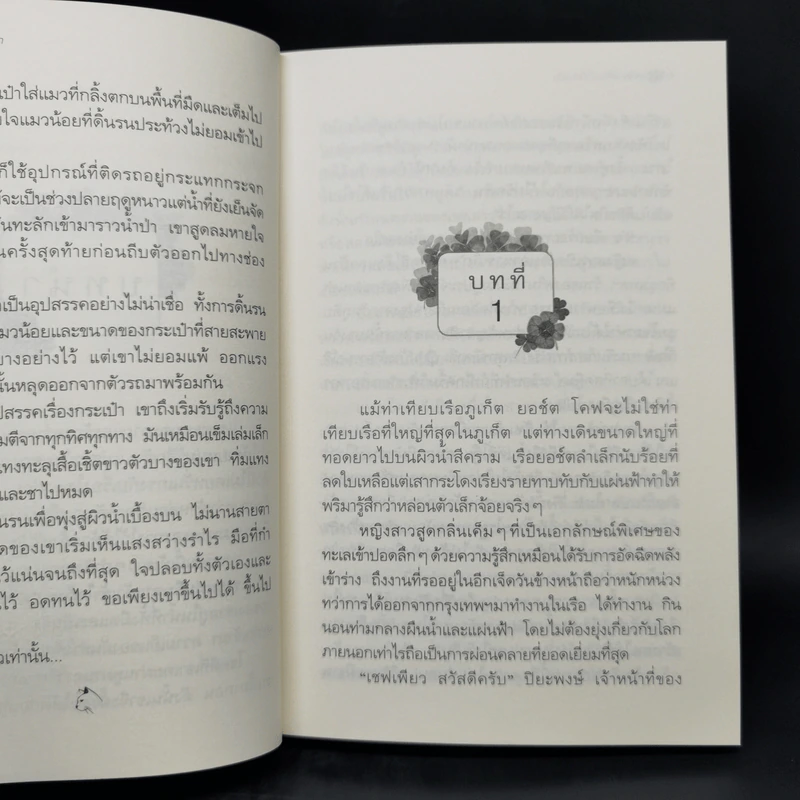 เป๋าใส่แมวที่กลิ้งตกบนพื้นที่มืดและเต็มไป
ใจแมวน้อยที่ดิ้นรนประท้วงไม่ยอมเข้าไป
ก็ใช้อุปกรณ์ที่ติดรถอยู่กระแทกกระจก
จะเป็นช่วงปลายฤดูหนาวแต่น้ำที่ยังเย็นจัด
ทะลักเข้ามาราวน้ำป่า เขาสูดลมหายใจ
นครั้งสุดท้ายก่อนถีบตัวออกไปทางช่อง
เป็นอุปสรรคอย่างไม่น่าเชื่อ ทั้งการดิ้นรน
มวน้อยและขนาดของกระเป๋าที่สายสะพาย
บางอย่างไว้ แต่เขาไม่ยอมแพ้ ออกแรง
นั้นหลุดออกจากตัวรถมาพร้อมกัน
ปสรรคเรื่องกระเป๋า เขาถึงเริ่มรับรู้ถึงความ
มตีจากทุกทิศทุกทาง มันเหมือนเข็มเล่มเล็ก
แทงทะลุเสื้อเชิ้ตขาวตัวบางของเขา ทิ่มแทง
และชาไปหมด
นรนเพื่อพุ่งสู่ผิวน้ำเบื้องบน ไม่นานสายตา
ดของเขาเริ่มเห็นแสงสว่างรำไร มือที่กำ
ไว้แน่นจนถึงที่สุด ใจปลอบทั้งตัวเองและ
นไว้ อดทนไว้ ขอเพียงเขาขึ้นไปได้ ขึ้นไป
วเท่านั้น...
บทที่
1
แม้ท่าเทียบเรือภูเก็ต ยอช์ต โคฟจะไม่ใช่ท่า
เทียบเรือที่ใหญ่ที่สุดในภูเก็ต แต่ทางเดินขนาดใหญ่ที่
ทอดยาวไปบนผิวน้ำสีคราม เรือยอช์ตลำเล็กนับร้อยที่
ลดใบเหลือแต่เสากระโดงเรียงรายทาบทับกับแผ่นฟ้าทำให้
พริมารู้สึกว่าหล่อนตัวเล็กจ้อยจริงๆ
หญิงสาวสูดกลิ่นเค็มๆ ที่เป็นเอกลักษณ์พิเศษของ
ทะเลเข้าปอดลึกๆ ด้วยความรู้สึกเหมือนได้รับการอัดฉีดพลัง
เข้าร่าง ถึงงานที่รออยู่ในอีกเจ็ดวันข้างหน้าถือว่าหนักหน่วง
ทว่าการได้ออกจากกรุงเทพฯ มาทำงานในเรือ ได้ทำงาน กิน
นอนท่ามกลางผืนน้ำและแผ่นฟ้า โดยไม่ต้องยุ่งเกี่ยวกับโลก
ภายนอกเท่าไรถือเป็นการผ่อนคลายที่ยอดเยี่ยมที่สุด
“เชฟเพียว สวัสดีครับ” ปิยะพงษ์ เจ้าหน้าที่ของ